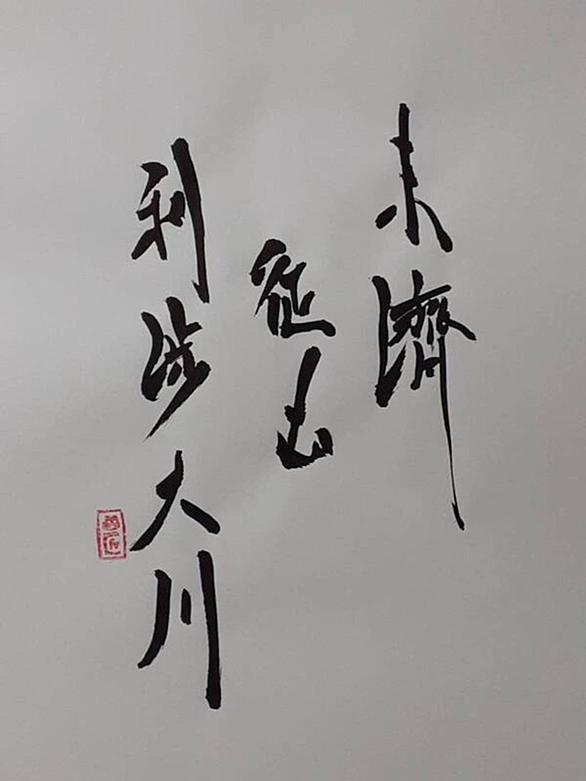 未濟
征凶
利涉大川